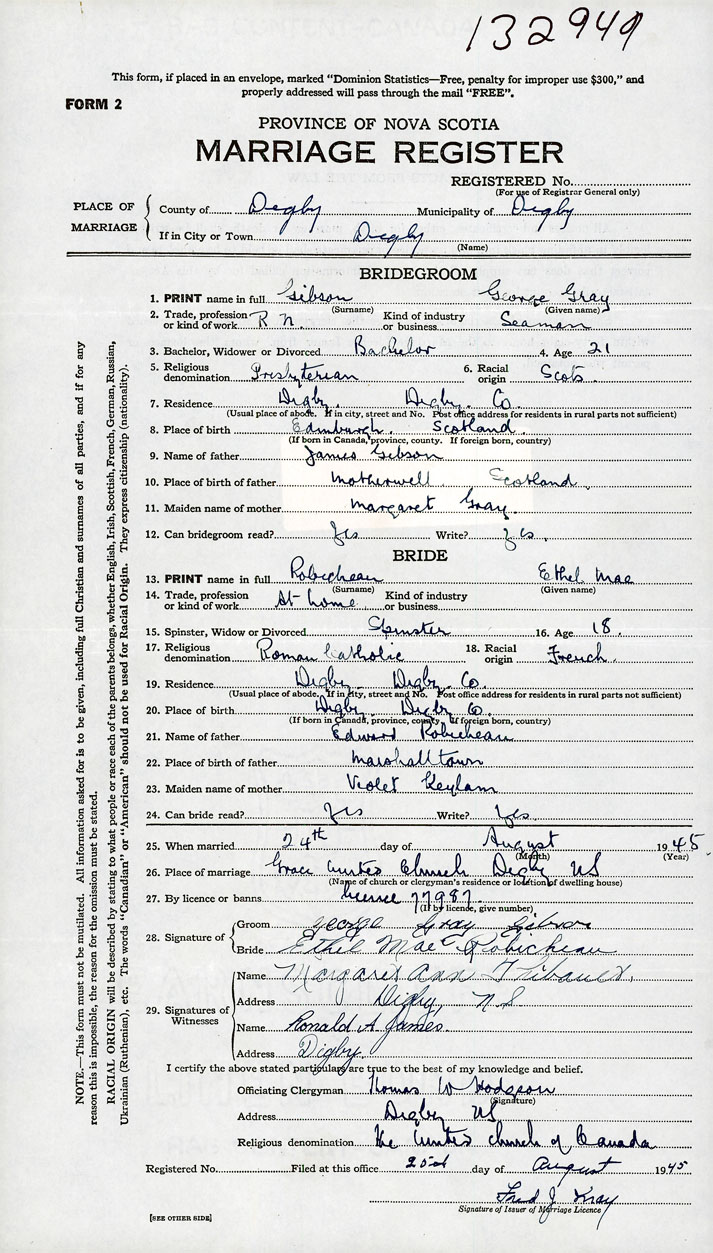 132949
This form, if placed in an envelope, marked "Dominion Statistics—Free, penalty for improper use $300," and
properly addressed will pass through the mail "FREE".
FORM 2
PROVINCE OF NOVA SCOTIA
MARRIAGE REGISTER
REGISTERED No.
(For use of Registrar General only)
PLACE OF MARRIAGE
County of Digby Municipality of Digby
If in City or Town Digby
(Name)
BRIDEGROOM
1. PRINT name in full Gibson George Gray
(Surname) (Given name)
2. Trade, profession or kind of work R N. Kind of industry or business Seaman
3. Bachelor, Widower or Divorced Bachelor 4. Age 21
5. Religious denomination Presbyterian 6. Racial origin Scots.
7. Residence Digby. Digby. Co.
(Usual place of abode. If in city, street and No. Post office address for residents in rural parts not sufficient)
8. Place of birth Edinburgh. Scotland.
(If born in Canada, province, county. If foreign born, country)
9. Name of father James Gibson
10. Place of birth of father Motherwell Scotland.
11. Maiden name of mother Margaret Gray.
12. Can bridegroom read? Yes Write? Yes.
BRIDE
13. PRINT name in full Robicheau Ethel Mae
(Surname) (Given name)
14. Trade, profession or kind of work At-home Kind of industry or business
15. Spinster, Widow or Divorced Spinster 16. Age 18.
17. Religious denomination Roman Catholic 18. Racial origin French.
19. Residence Digby. Digby. Co.
(Usual place of abode. If in city, street and No. Post office address for residents in rural parts not sufficient)
20. Place of birth Digby. Digby Co.
(If born in Canada, province, county. If foreign born, country)
21. Name of father Edward Robicheau
22. Place of birth of father Marshalltown
23. Maiden name of mother Violet
24. Can bride read? Yes Write? Yes.
25. When married 24th day of August 1945.
(Month) (Year)
26. Place of marriage Grace United Church Digby NS
(Name of church or clergyman's residence or location of dwelling house)
27. By licence or banns licence 77987.
(If by licence, give number)
28. Signature of
Groom George Gray Gibson
Bride Ethel Mae Robicheau
29. Signatures of Witnesses
Name Margaret Ann Thibault.
Address Digby, N.S
Name Ronald A James.
Address Digby.
I certify the above stated particulars are true to the best of my knowledge and belief.
Officiating Clergyman Thomas W Hodgson
(Signature)
Address Digby NS
Religious denomination The United church of Canada
Registered No. Filed at this office 25th day of August 1945
Fred J
Signature of Issuer of Marriage Licence
[SEE OTHER SIDE]
NOTE.—This form must not be mutilated. All information asked for is to be given, including full Christian and surnames of all parties, and if for any
reason this is impossible, the reason for the omission must be stated.
RACIAL ORIGIN will be described by stating to what people or race each of the parents belongs, whether English, Irish, Scottish, French, German, Russian,
Ukrainian (Ruthenian), etc. The words "Canadian" or "American" should not be used for Racial Origin. They express citizenship (nationality).